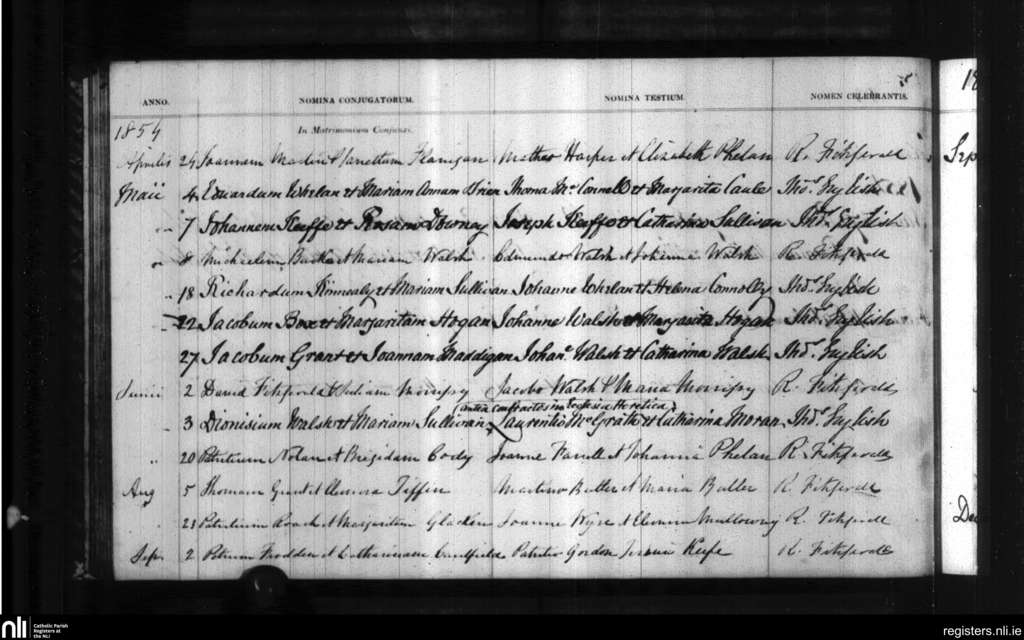 ANNO. NOMINA CONJUGATORUM. NOMINA TESTIUM. NOMEN CELEBRANTIS.
1854 In Matrimonium Conjunxi.
Aprilis 24 Joannem Martin & Janettam Flanigan Matheo Harper et Elizabeth Phelan R. Fitzgerald
Maii 4 Eduardum Whelan et Mariam Annam Brien Thoma McConnell et Margarita Caule Thos. English
" 7 Johannem Keeffe et Rosam Downey Joseph Keeffe et Catharina Sullivan Thos. English
" 8 Michaelem Burke et Mariam Walsh Edmundo Walsh et Johanna Walsh R. Fitzgerald
" 18 Richardum Kinnealy et Mariam Sullivan Johanne Whelan et Helena Connolly Thos. English
" 22 Jacobum Boxe et Margaritam Hogan Johanne Walsh et Margarita Hogan Thos. English
27 Jacobum Grant et Joannam Maddigan Johane. Walsh et Catharina Walsh Thos. English
Junii 2 David Fitzgerald & Juliam Morrissy Jacobo Walsh & Maria Morrissy R. Fitzgerald
(antea contractos in Ecclesia Heretica)
" 3 Dionisium Walsh et Mariam Sullivan Laurentio McGrath et Catharina Moran Thos. English
" 20 Patritium Nolan et Brigidam Cody Joanne Farrell et Johanna Phelan R. Fitzgerald
Aug 5 Thomam Grant et Eleanora Tiffin Martino Butler et Maria Butler R. Fitzgerald
" 23 Patritium Roach et Margaritam Joanne Wyse et R. Fitzgerald
Sep. 2 Petrum et Catharinam Caulfield Patritio Gordon Keefe R. Fitzgerald
18
Sep
De
nli Catholic Parish
Registers at
the NLI
registers.nli.ie